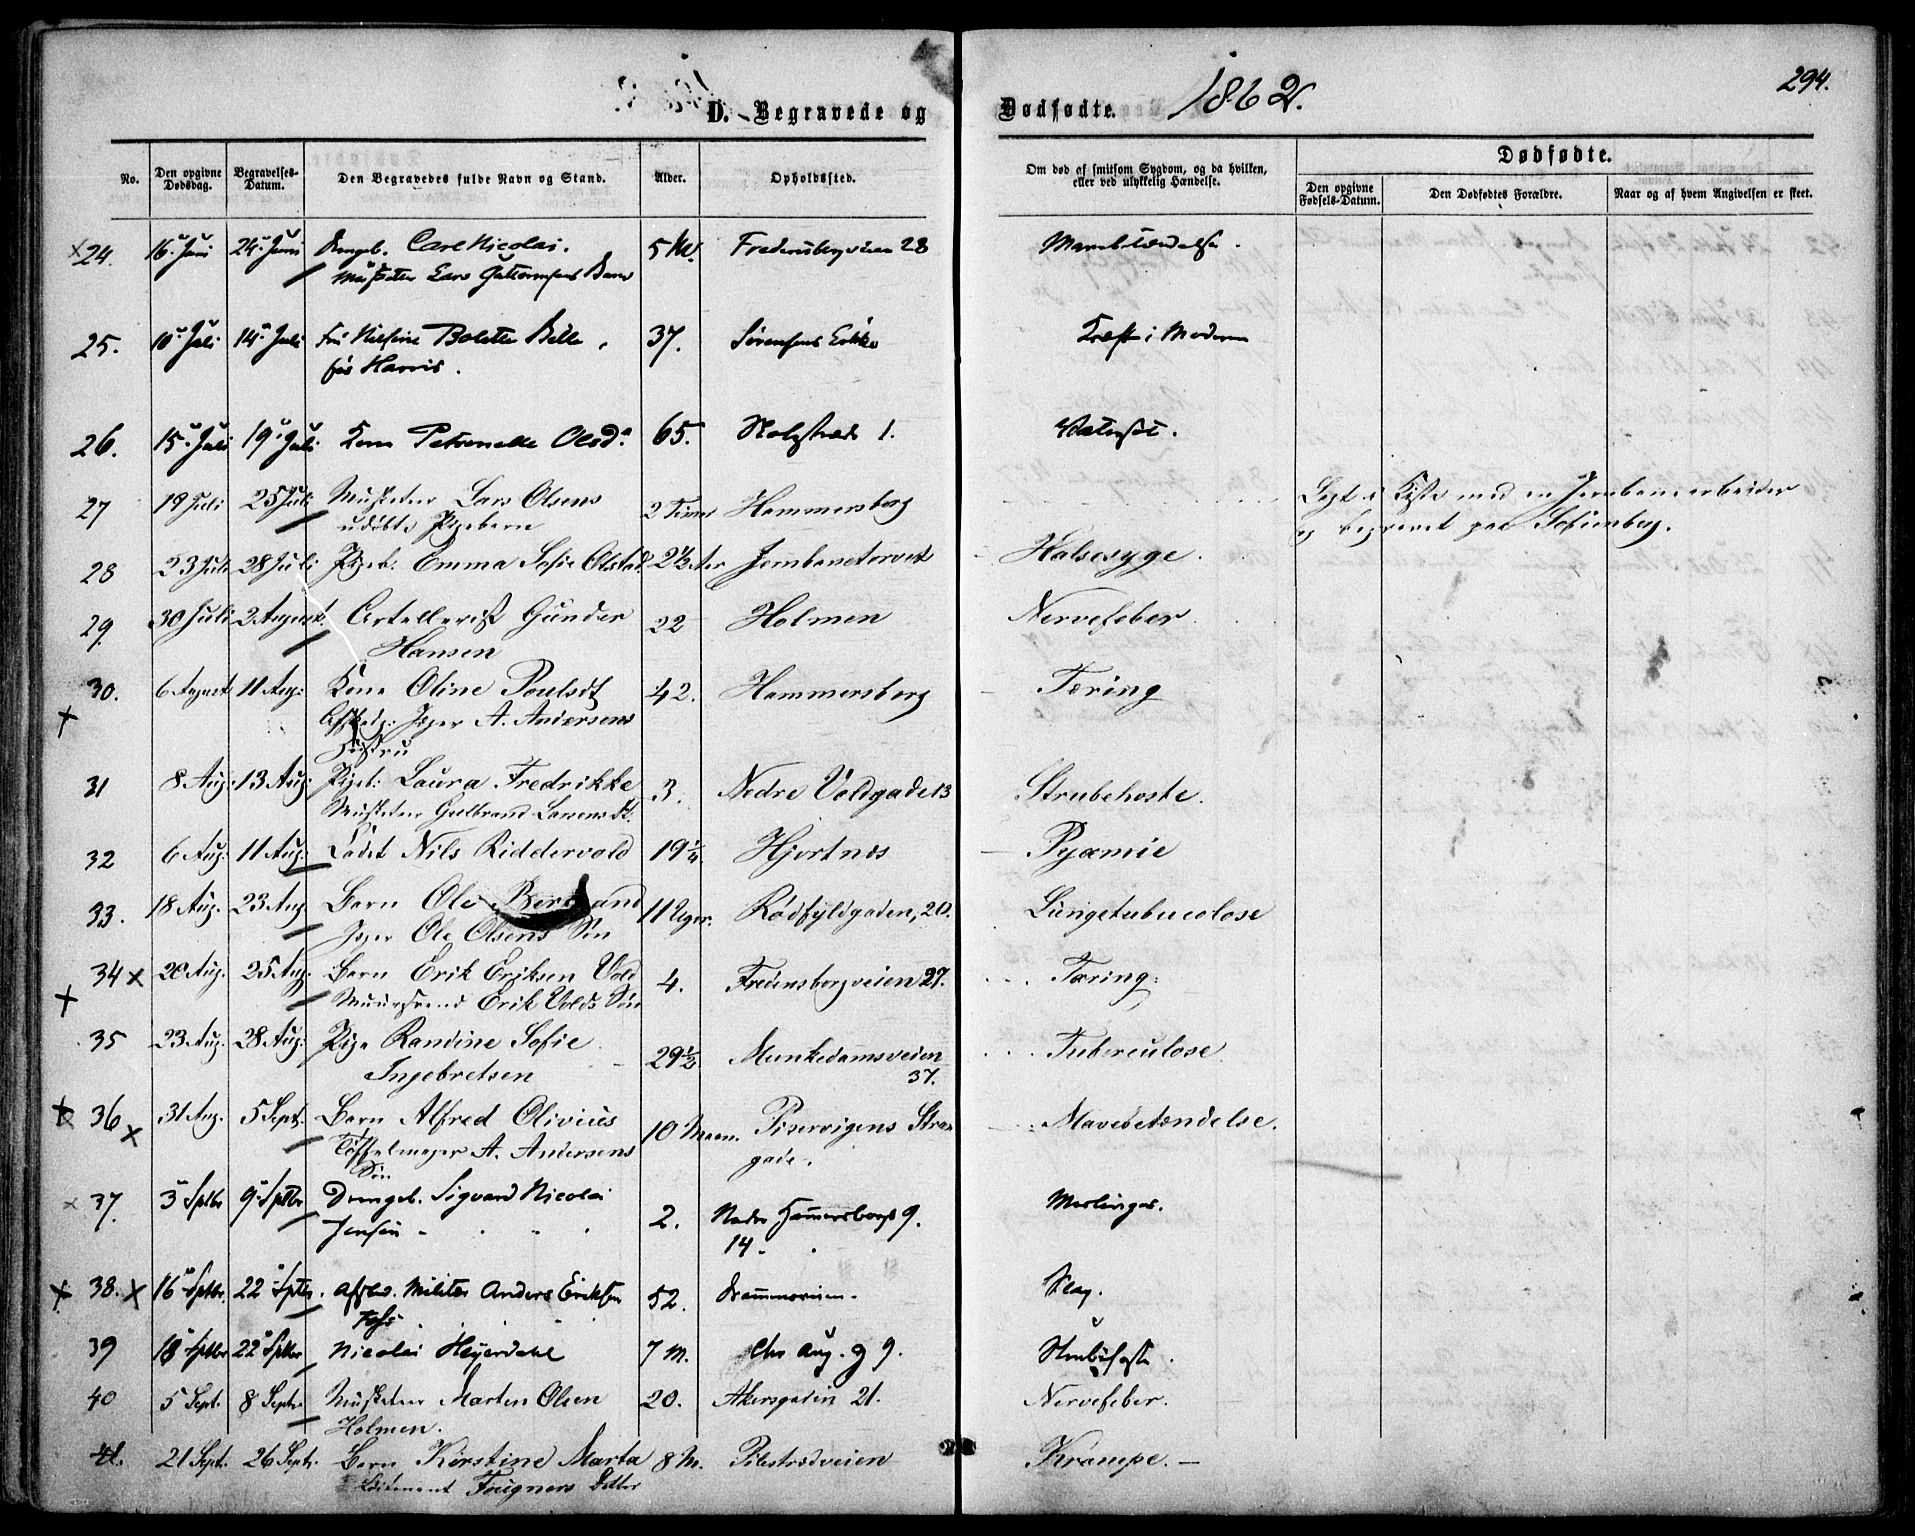 294.
1862.
D. Begravede og Dødfødte.
No.
Den opgivne Dødsdag.
Begravelses-Datum.
Den Begravedes fulde Navn og Stand.
Alder.
Opholdssted.
Om død af smitsom Sygdom, og da hvilken, eller ved ulykkelig Hændelse.
Dødfødte.
Den opgivne Fødsels-Datum.
Den Dødfødtes Forældre.
Naar og af hvem Angivelsen er skeet.
24. 16 Juni 24 Juni Drengb. Carl Nicolai. 5 M. 28
Lars Guttormsens Barn
25. 10 Juli 14 Juli Nilsine Bolette Bille 37. Kræft i Moderen
Harris.
26. 15 Juli 19 Juli Kone Petronelle Olsd. 65. 1. Vatersot.
27 19 Juli 25 Juli Musketeer Lars Olsens 2 Timer Hammersborg Lagt i Kiste med en Jernbanearbeider
udøbte Pigebarn og begravet paa Sofienberg.
28 23 Juli 28 Juli Pigeb. Emma Sofie Olstad 2½ Aar Jernbanetorvet Halsesyge.
29. 30 Juli 2 August Artellerist Gunder 22 Holmen Nervefeber
Hansen
30. 6 August 11 Aug: Kone Oline Poulsdt 42. Hammersborg Tæring
Afskedg. Jæger A. Andersens
Hustru
31 8 Aug: 13 Aug: Pigeb: Laura Fredrikke 3. Nedre Voldgade 13 Strubehoste.
Musketeer Gulbrand Larsens Dt.
32 6 Aug: 11 Aug: Cadet Nils Riddervold 19¼ Hjortnes Pyæmie
33. 18 Aug. 23 Aug Barn Ole 11 Uger. Rødfyldgaden, 20. Lungetuberculose
Jæger Ole Olsens Søn
34 20 Aug. 25 Aug. Barn Erik Eriksen Vold 4. Fredensborgveien 27. Tæring.
Muursvend Erik Volds Søn
35 23 Aug. 28 Aug: Pige Randine Sofie 29½ Munkedamsveien 37. Tuberculose
Ingebretsen
36 31 Aug. 5 Sept. Barn Alfred Olivius 10 Maan. Pipervigens Strandgade. Mavebetændelse.
Tøffelmager A. Andersens
Søn
37. 3 Sptbr 9 Sptbr Drengeb. Sigvard Nicolai 2. Nedre Hammersborg 9. Meslinger.
Jensen 14
38. 16 Sptbr. 22 Sptbr. Militær Anders Eriksen 52. Drammensveien. Slag.
Foss
39 18 Sptbr 22 Sptbr Nicolai Heyerdahl 7 M. Chr Aug. g 9. Strubehoste
40 5 Sept. 8 Sept. Musketeer Marten Olsen 20. Akersgaden 21. Nervefeber.
Holmen.
41. 21 Sept. 26 Sept. Barn Kirstine Marta 8 M. Pilestrædveien Krampe.
Løitenant Faugners Datter